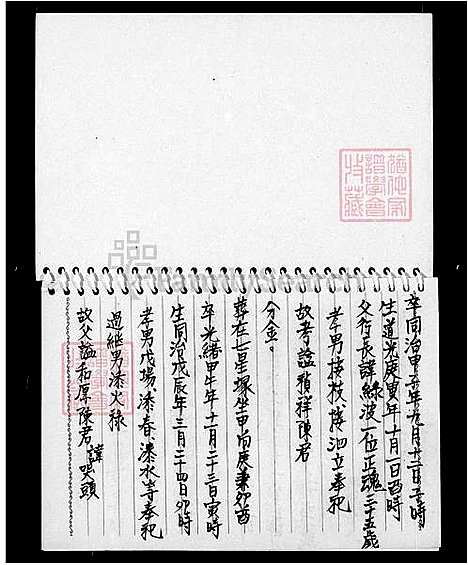 卒同治甲子年九月廿二日子時
生道光庚寅年十月一日酉時
父行長諱綠波一位正魂三十五歲
孝男接枝接泗立奉祀
故考諡積祥陳君
分金。
葬在七星堀坐甲向庚兼卯酉
卒光緒甲午年十一月二十三日寅時
生同治戊辰年三月二十四日卯時
孝男戊場添春添水等奉祀
過繼男添火祿
故父諡和厚陳君諱哭頭
譜學會